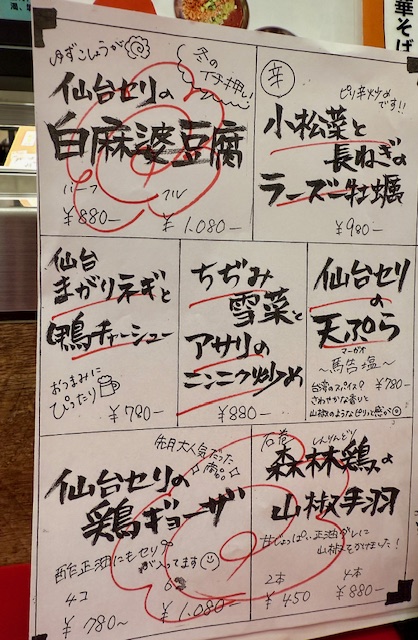 華そば
ゆずこしょうが
冬の
イチ押し
仙台セリの
白麻婆豆腐
ハーフ
フル
¥880-
¥1,080-
辛
ピリ辛炒め
です!!
小松菜と
長ねぎの
ラーズー牡蠣
¥980-
仙台
まがりネギと
鴨チャーシュー
おつまみに
ぴったり
¥790-
ちぢみ
雪菜と
アサリの
ニンニク炒め
¥880-
仙台セリ
の
天ぷら
マーガオ
〜馬告塩〜
¥780-
台湾のスパイス
さわやかな香りと
山椒のようなピリッと感が
先月大人気だった
仙台セリの
鶏ギョーザ
酢正油にもセリ
が入ってます
4コ
¥780-
¥1,080-
石巻
しんりんどり
森林鶏の
山椒手羽
甘じょっぱい正油ダレに
山椒をかけました!
2本
4本
¥450
¥880-